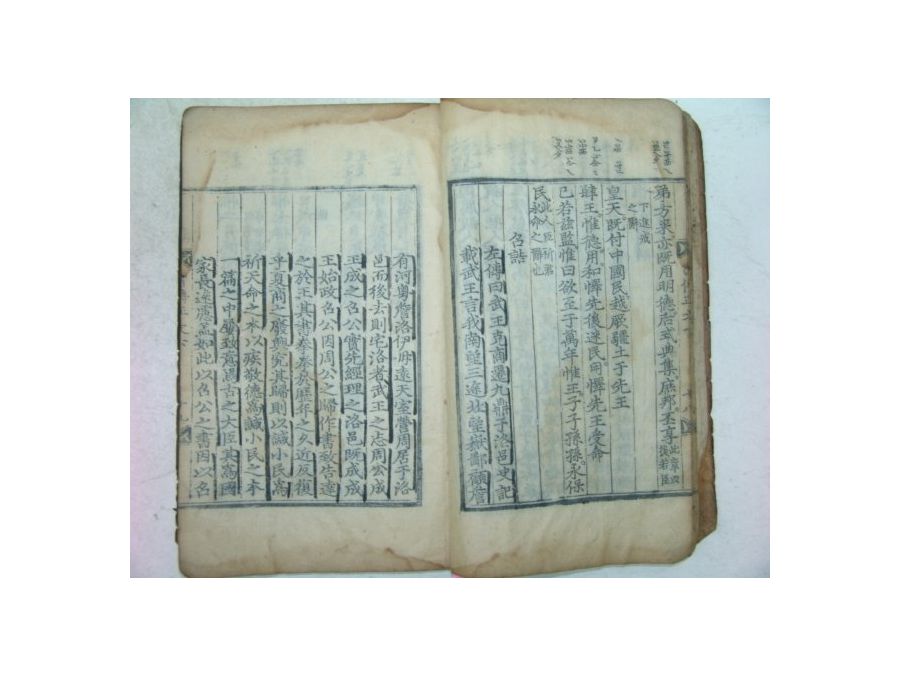 弟方來亦既用明德后式典集庶邦丕享
此章次
後若臣
下進戒
之辭
皇天既付中國民越厥疆土于先王
肆王惟德用和懌先後迷民用懌先王受命
已若玆監惟曰欲至于萬年惟王子子孫孫永保
民
此人臣祈
永命之辭也
召誥
左傳曰武王克商遷九鼎于洛邑史記
載武王言我南望三途北望嶽鄙顧詹
有河粤詹洛伊毋遠天室營周居于洛
邑而後去則宅洛者武王之志周公成
王成之召公實先經理之洛邑既成成
王始政召公因周公之歸作書致告達
之於王其書拳拳於歷年之久近反復
乎夏商之廢興究其歸則以諴小民爲
祈天命之本以疾敬德爲諴小民之本
一篇之中屢致意焉古之大臣其爲國
家長遠慮盖如此以召公之書因以召